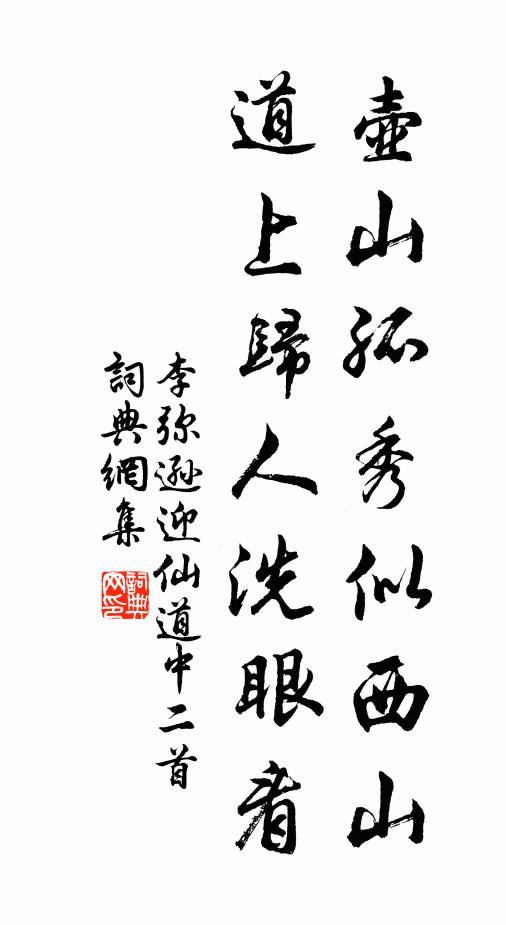 壺山孤秀似西山
道上歸人洗眼看
李弥遜迎仙道中二首
詞典網集
詞典网印